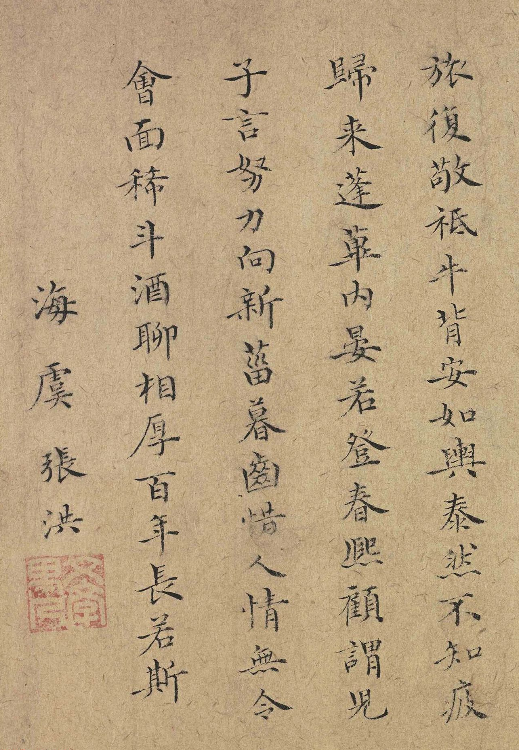 旅復敬祗牛背安如輿泰然不知疲
歸来蓬蓽內晏若登春熙顧謂児
子言努力向新菑暮齒惜人情無令
會面稀斗酒聊相厚百年長若斯
海虞張洪